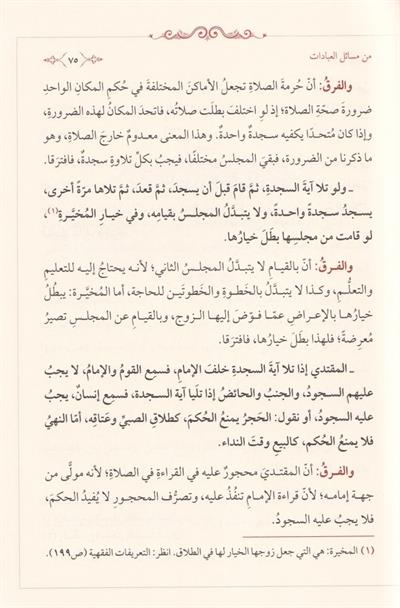 من مسائل العبادات
٧٥
والفرقُ: أنّ حُرمةَ الصلاةِ تجعلُ الأماكنَ المختلفةَ في حُكمِ المكانِ الواحدِ
ضرورةَ صحّةِ الصلاة؛ إذ لو اختلفَ بطلَت صلاتُه، فاتحدَ المكانُ لهذه الضرورةِ،
وإذا كان مُتحدًا يكفيه سجدةٌ واحدةٌ. وهذا المعنى معدومٌ خارجَ الصلاةِ، وهو
ما ذكرنا من الضرورة، فبقيَ المجلسُ مختلفًا، فيجبُ بكلِّ تلاوةٍ سجدةٌ، فافترَقا.
ـ ولو تلا آيةَ السجدةِ، ثمَّ قامَ قبلَ أن يسجدَ، ثمَّ قعدَ، ثمَّ تلاها مرّةً أخرى،
يسجدُ سجدةً واحدةً، ولا يتبدَّلُ المجلسُ بقيامِه، وفي خيارِ المُخيَّرةِ(١)
لو قامت من مجلسِها بطَلَ خيارُها.
والفرقُ: أنّ بالقيامِ لا يتبدَّلُ المجلسُ الثاني؛ لأنه يحتاجُ إليه للتعليمِ
والتعلُّمِ، وكذا لا يتبدلُ بالخَطوةِ والخَطوتَينِ للحاجة، أما المُخيَّرة: يبطُلُ
خيارُها بالإعراضِ عمّا فوّضَ إليها الزوج، وبالقيامِ عن المجلسِ تصيرُ
مُعرِضةً؛ فلهذا بطَلَ خيارُها، فافترَقا.
ـ المقتدي إذا تلا آيةَ السجدةِ خلفَ الإمامِ، فسمِع القومُ والإمامُ، لا يجبُ
عليهم السجودُ، والجنبُ والحائضُ إذا تلَيا آية السجدة، فسمِع إنسانٌ، يجبُ
عليه السجودُ، أو نقول: الحَجرُ يمنعُ الحُكمَ، كطلاقِ الصبيِّ وعَتاقِه، أمّا النهيُ
فلا يمنعُ الحُكم، كالبيعِ وقتَ النداء.
والفرقُ: أنّ المقتديَ محجورٌ عليه في القراءةِ في الصلاةِ؛ لأنه مولًّى من
جهةِ إمامه؛ لأنّ قراءةَ الإمامِ تنفُذُ عليه، وتصرُّف المحجورِ لا يُفيدُ الحكمَ،
فلا يجبُ عليه السجودُ.
(١) المخيرة: هي التي جعل زوجها الخيار لها في الطلاق. انظر: التعريفات الفقهية (ص١٩٩).